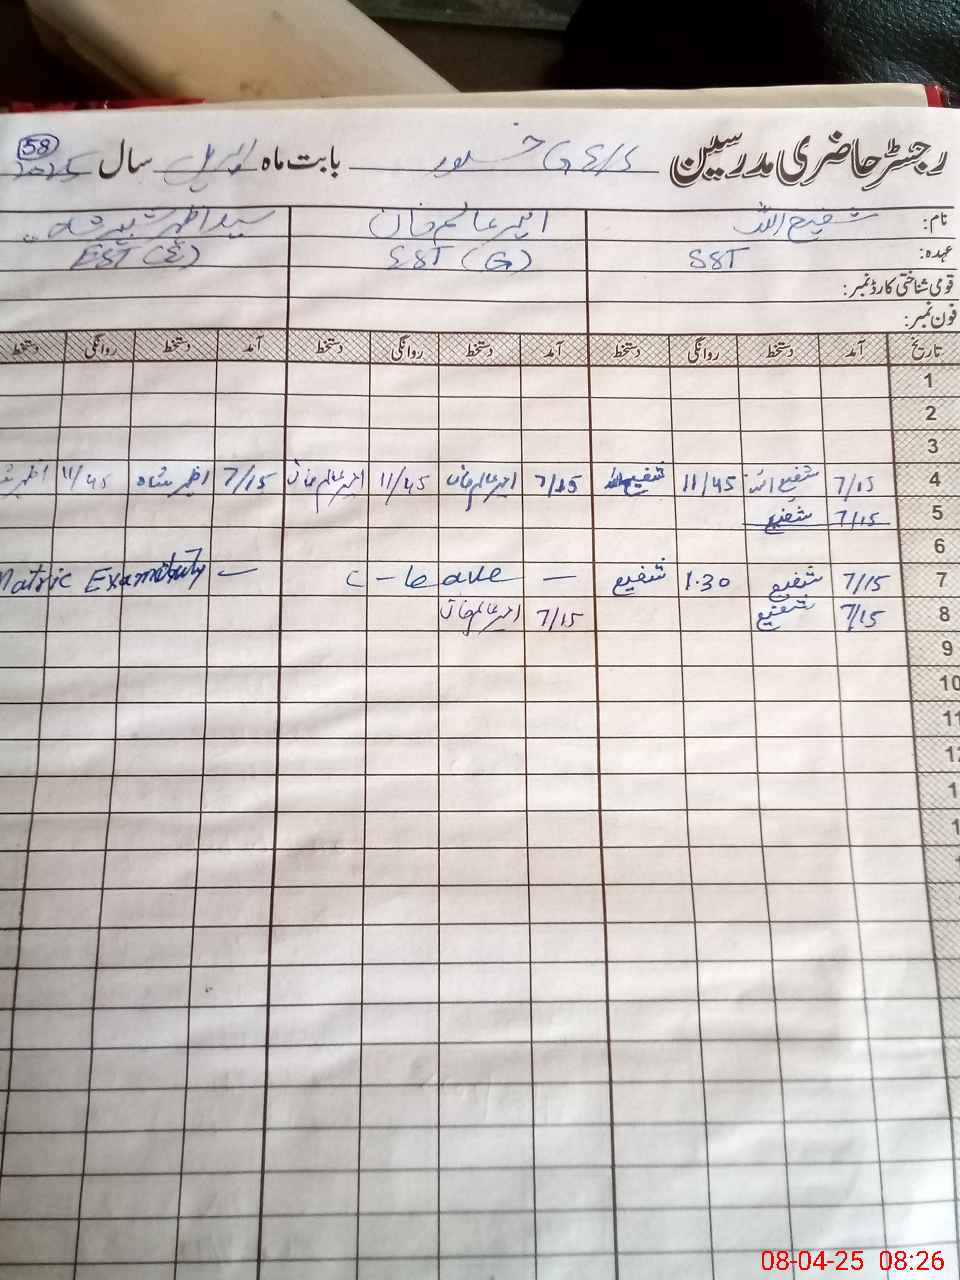 58
رجسٹر حاضری مدرسین G E/S بابت ماہ اپریل سال 2025
نام: شفیع اللہ امیر عالم خان سید اظہر
عہدہ: SST EST (G) EST (E)
قومی شناختی کارڈ نمبر:
فون نمبر:
تاریخ آمد دستخط روانگی دستخط آمد دستخط روانگی دستخط آمد دستخط روانگی دستخط
1
2
3
4 7/15 شفیع اللہ 11/45 شفیع اللہ 7/15 امیر عالم خان 11/45 امیر عالم خان 7/15 اظہر شاہ 11/45 اظہر
5 7/15 شفیع
6
7 7/15 شفیع 1.30 شفیع — C-leave — Matric Exam duty
8 7/15 شفیع 7/15 امیر عالم خان
9
10
11
12
1
1
08-04-25 08:26